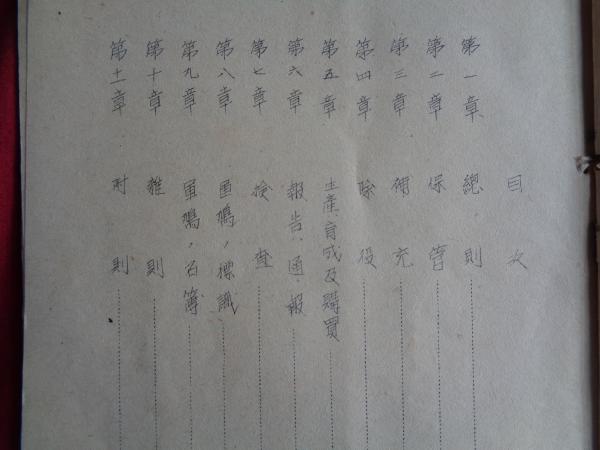 目次
第一章 總則
第二章 保管
第三章 補充
第四章 除役
第五章 生産、育成及購買
第六章 報告、通報
第七章 検査
第八章 軍鳩ノ標識
第九章 軍鳩ノ名簿
第十章 雜則
第十一章 附則